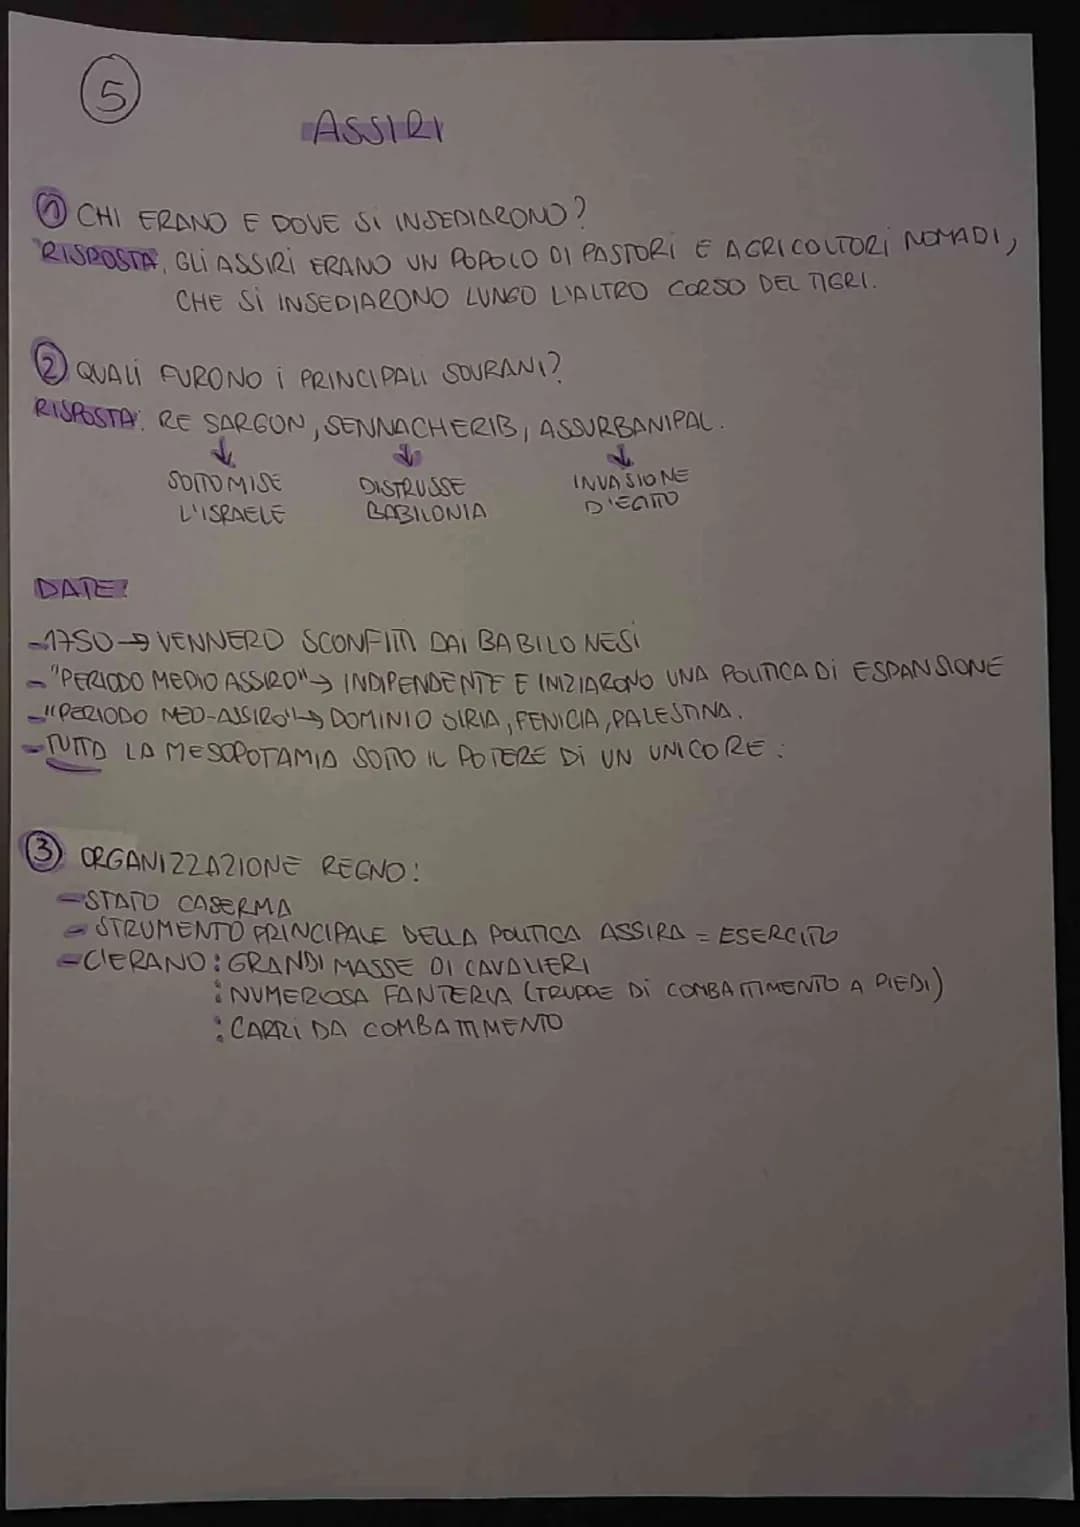 5
ASSIRI
1 CHI ERANO E DOVE SI INSEDIARONO?
RISPOSTA: GLI ASSIRI ERANO UN POPOLO DI PASTORI E AGRICOLTORI NOMADI,
CHE SI INSEDIARONO LUNGO L'ALTRO CORSO DEL TIGRI.
2 QUALI FURONO I PRINCIPALI SOVRANI?
RISPOSTA: RE SARGON, SENNACHERIB, ASSURBANIPAL.
↓ ↓ ↓
SOTTOMISE DISTRUSSE INVASIONE
L'ISRAELE BABILONIA D'EGITTO
DATE:
-1750→ VENNERO SCONFITTI DAI BABILONESI
-"PERIODO MEDIO ASSIRO"→ INDIPENDENTE E INIZIARONO UNA POLITICA DI ESPANSIONE
-"PERIODO NEO-ASSIRO"→ DOMINIO SIRIA, FENICIA, PALESTINA.
-TUTTA LA MESOPOTAMIA SOTTO IL POTERE DI UN UNICO RE.
3 ORGANIZZAZIONE REGNO:
-STATO CASERMA
- STRUMENTO PRINCIPALE DELLA POLITICA ASSIRA = ESERCITO
-C'ERANO: GRANDI MASSE DI CAVALIERI
: NUMEROSA FANTERIA (TRUPPE DI COMBATTIMENTO A PIEDI)
: CARRI DA COMBATTIMENTO